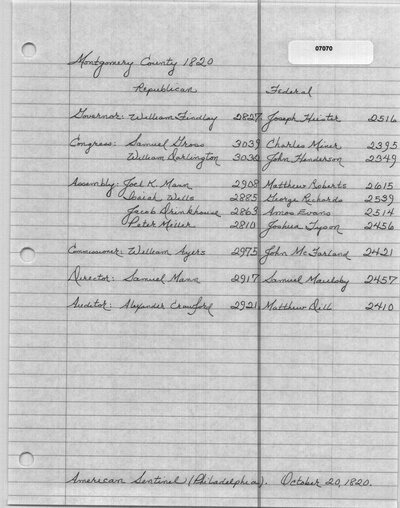 07070
Montgomery County 1820
Republican Federal
Governor: William Findlay 2827 Joseph Hiester 2516
Congress: Samuel Gross 3039 Charles Miner 2395
William Darlington 3030 John Henderson 2349
Assembly: Joel K. Mann 2908 Matthew Roberts 2615
Isaiah Wells 2885 George Richards 2539
Jacob Drinkhouse 2863 Amos Evans 2514
Peter Miller 2810 Joshua Tyson 2456
Commissioner: William Ayers 2975 John McFarland 2421
Director: Samuel Mann 2917 Samuel 2457
Auditor: Alexander Crawford 2921 Matthew 2410
American Sentinel (Philadelphia). October 20, 1820.